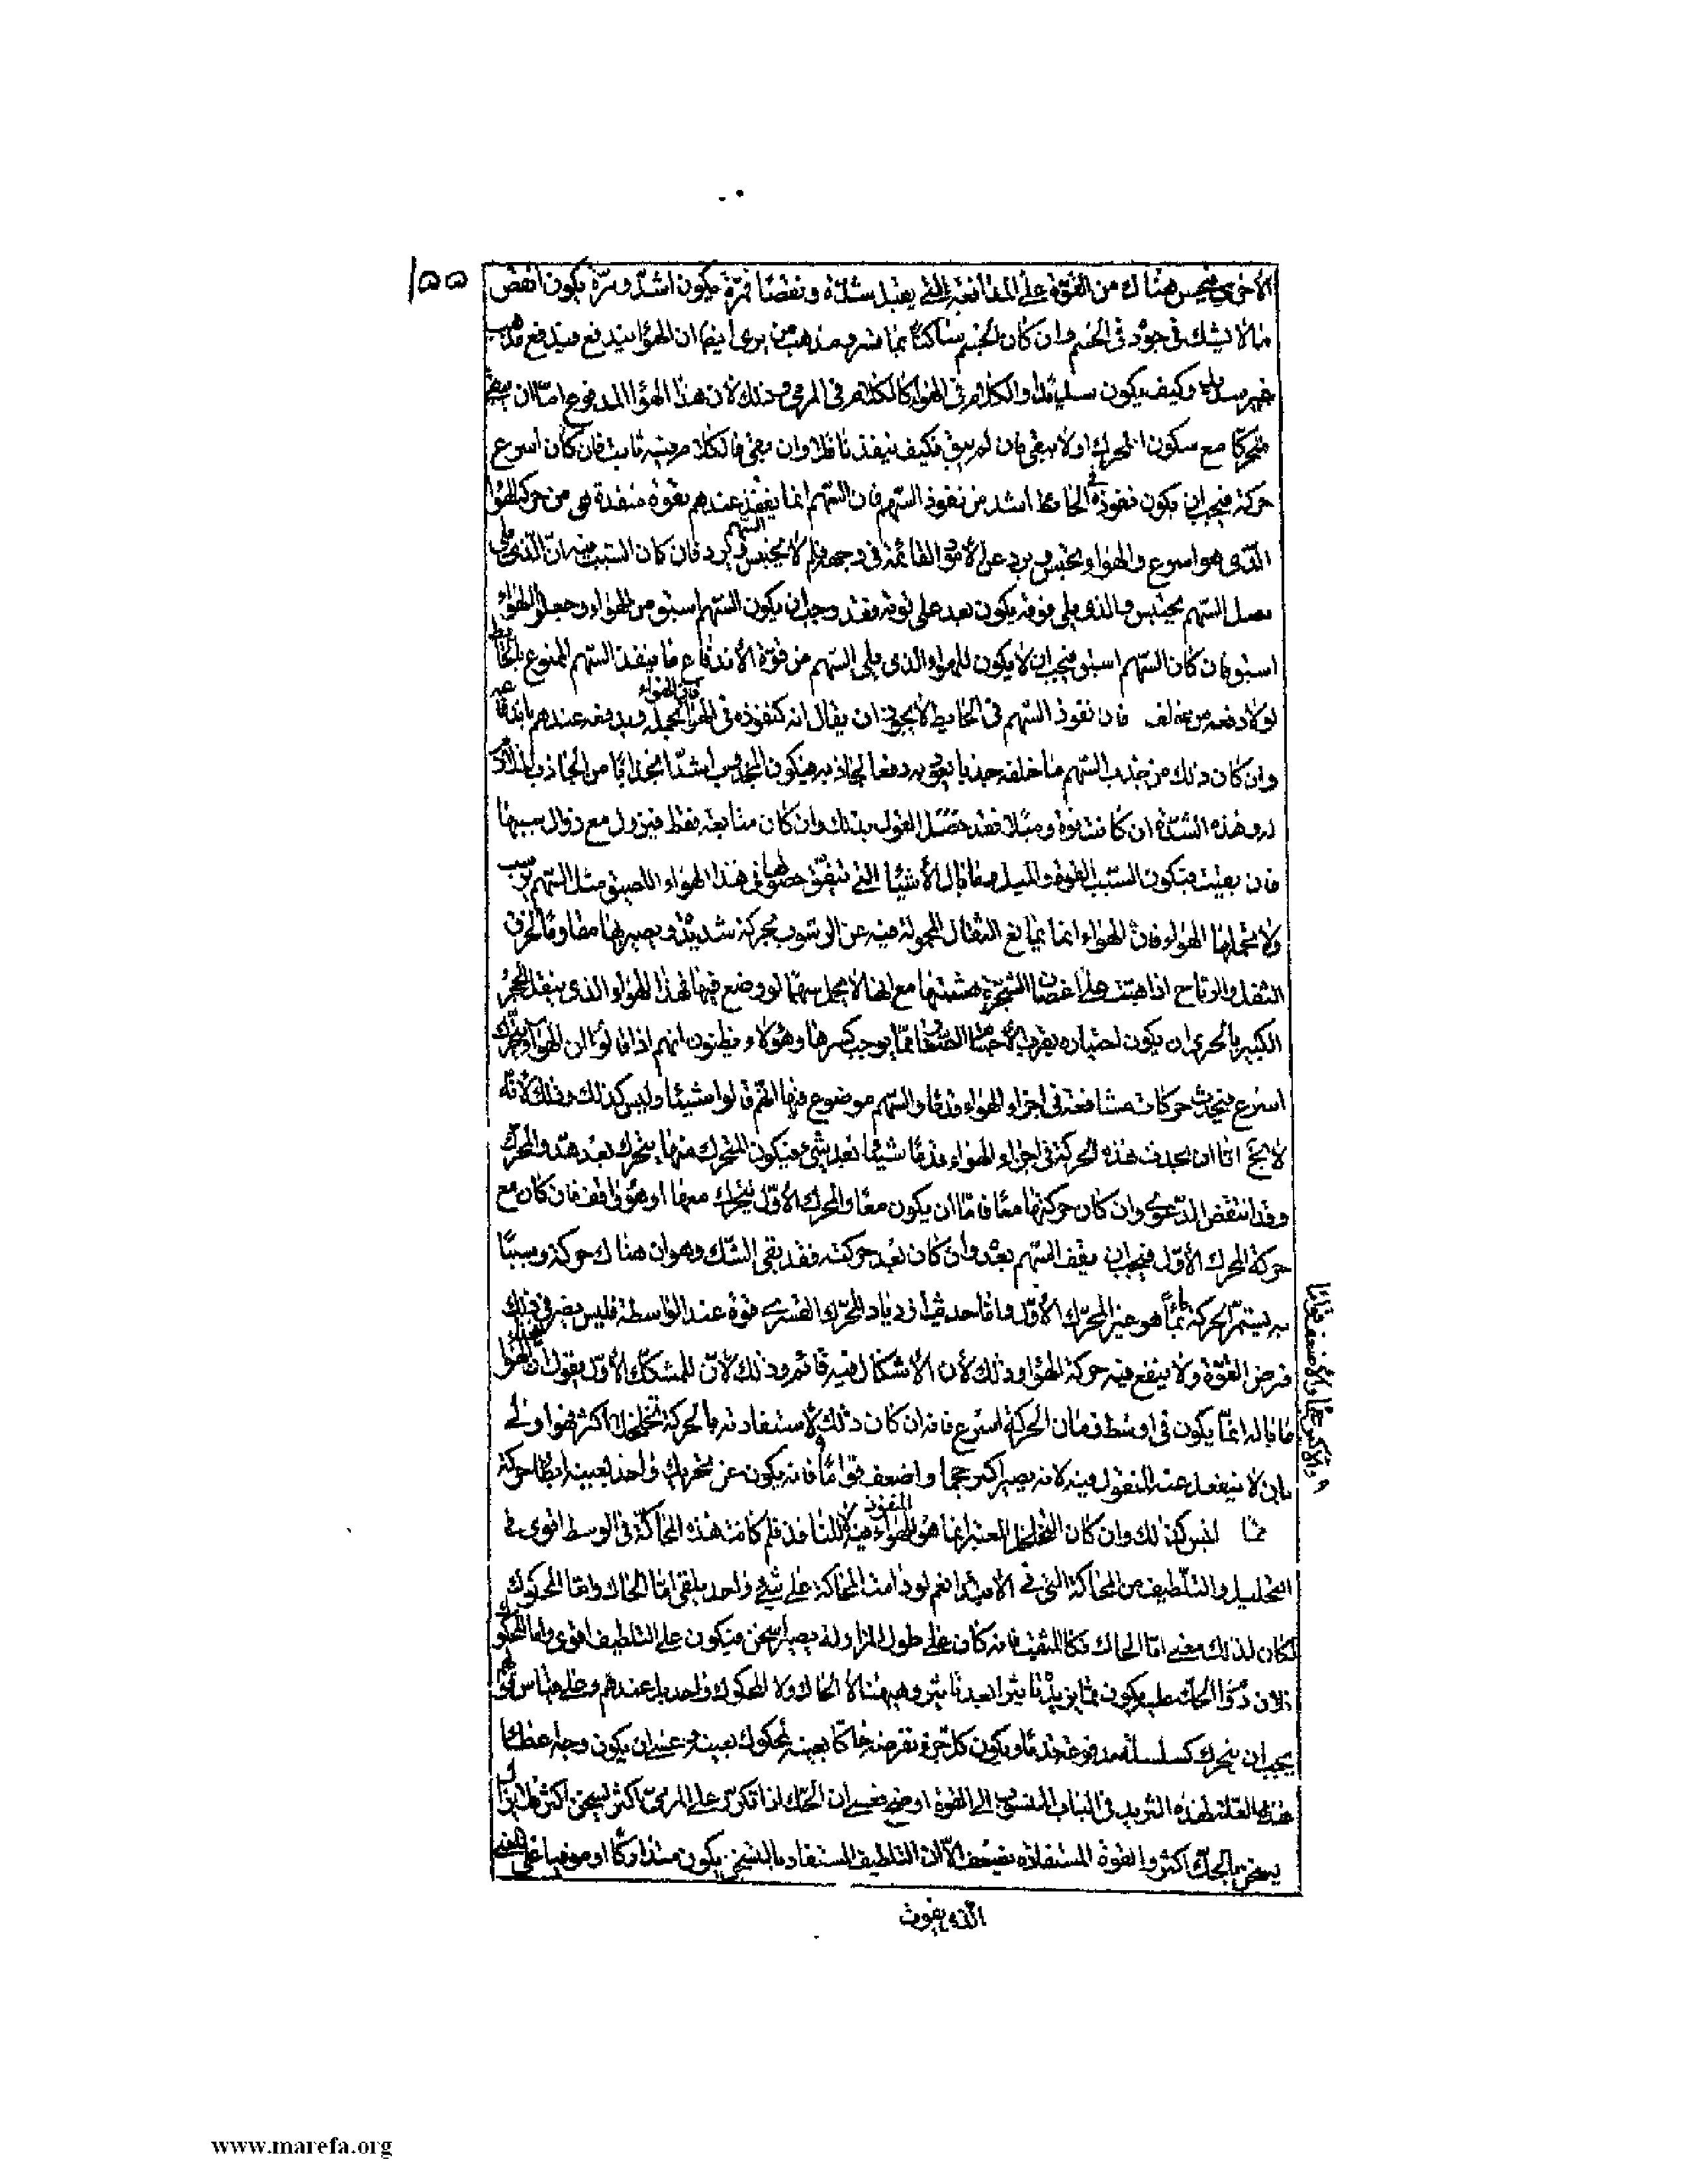 ١٥٥
الأخرى فيحس هناك من القوة على المدافعة التي يقبل شدة ونقصا فمرة يكون اشد ومرة يكون انقص
مما لا يشك فى وجوده فى الجسم وان كان الجسم ساكنا بما قسر ومذهب من يرى ايضا ان الهواء يندفع فيدفع مذهب
غير سديد وكيف يكون سديدا والكلام فى الهواء كالكلام فى المرمى وذلك لأن هذا الهواء المدفوع اما ان يبقى
متحركا مع سكون المحرك او لا يبقى فان لم يبق فكيف ينفذ ناقلا وان بقى فالكلام فيه ثابت فان كان اسرع
حركة فيجب ان يكون نفوذه فى الحائط اشد من نفوذ السهم فان السهم انما ينفذ عندهم بقوة منفذة هى من حركة الهواء
الذى هو اسرع والهواء يحتبس ويرد عن الأمور القائمة فى وجهه فلم لا يحتبس السهم ويرد فان كان السبب فيه ان الذى يلى
نصل السهم يحتبس والذى يلى فوقه يكون بعد على قوته فقد وجب ان يكون السهم اسبق من الهواء وجعلوا الهواء
اسبق فان كان السهم اسبق فيجب ان لا يكون للهواء الذى يلى السهم من قوة الاندفاع ما ينفذ السهم الممنوع بالحائط
لولا دفعه من خلف فان نفوذ السهم فى الحايط لا يجوز ان يقال انه كنفوذه فى الهواء فان الهواء يحمله ويدفعه عندهم باندفاعه
وان كان ذلك من جذب السهم ما خلفه جذبا يعود به دفعا لجاذبه فيكون المجذوب اشد انجذابا من الجاذب الملازم
له وهذه الشدة ان كانت قوة وميلا فقد حصل القول بذلك وان كان متابعة فقط فيزول مع زوال سببها
فان بقيت فيكون السبب القوة والميل وما بال الأشياء التى يتفق حصولها فى هذا الهواء اللصيق مثل السهم يرسب
ولا يحملها الهواء فان الهواء انما يمانع الثقال المحمولة فيه عن الرسوب بحركة شديدة ويصير بها مقاوما لخرق
الثقل والرياح اذا هبت على اغصان الشجرة هشمتها مع انها لا يحمل سهما لو وضع فيها فهذا الهواء الذى ينقل الحجر
الكبير بالحرى ان يكون اجتيازه بقرب الأجسام القائمة مما يوجب كسرها وهؤلاء يظنون انهم اذا قالوا ان الهواء يتحرك
اسرع فيحدث حركات متشافعة فى اجزاء الهواء قدما والسهم موضوع فيها انهم قالوا شيئا وليس كذلك وذلك لأنه
لا يخ اما ان يحدث هذه الحركة فى اجزاء الهواء قدما شيئا بعد شئ فيكون المتحرك منها يتحرك بعد هدو المحرك
وقد انتقض الدعوى وان كان حركتها معا فاما ان يكون معا والمحرك الأول يتحرك معها او هو واقف فان كان مع
حركة المحرك الأول فيجب ان يقف السهم بعده وان كان بعد حركته فقد بقى الشك وهو ان هناك حركة وسببا
به يستمر الحركة قائما هو غير المحرك الأول واما حديث ازدياد المحرك القسرى قوة عند الواسطة فليس يضر فى ذلك
فرض القوة ولا ينفع فيه حركة الهواء وذلك لأن الأشكال فيه قائم وذلك لأن للمشكك الأول يقول ان تخلخل الهواء
ما باله انما يكون فى اوسط زمان الحركة اسرع فانه ان كان ذلك لاستفادته بالحركة تخلخلا اكثر فهو اولى
بان لا ينفعل عنه المنقول فيه لانه يصير اكبر حجما واضعف قواما فانه يكون عن تحريك واحد بعينه ابطأ حركة
والأكبر حجما والأضعف قواما
مما ليس كذلك وان كان التخلخل المعتبر انما هو للهواء المنفوذ فيه لا للنافذ فلم كانت هذه المحاكة فى الوسط اقوى فى
التحليل والتلطيف من المحاكة التى فى الأبتداء نعم لو دامت المحاكة على شئ واحد يلقى اما الحاك واما المحكوك
لكان لذلك معنى اما الحاك فكالمثقب فانه كان على طول المزاولة يصير اسخن فيكون على التلطيف اقوى واما المحكوك
فلان دوام الحك عليه يكون مما يزيد تاثيرا بعد تاثير وهيهنا لا الحاك ولا المحكوك واحد بل عندهم وعلى قياس قولهم
يجب ان يتحرك كسلسلة مدفوعة قدما ويكون كل جزء نفرضه حاكا بعينه لمحكوك بعينه وعسى ان يكون وجه غطاء
هذه العلة لهذه التزيد فى الباب المنسوب الى القوة اوضح فعسى ان الحك اذا تكرر على المرمى اكثر يسخن اكثر فلا يزال
يسخن بالحك اكثر والقوة المستفادة يضعف الا ان التلطيف المستفاد بالتسخن يكون متداركا او موفيا على المعنى
الذى يفوت
www.marefa.org